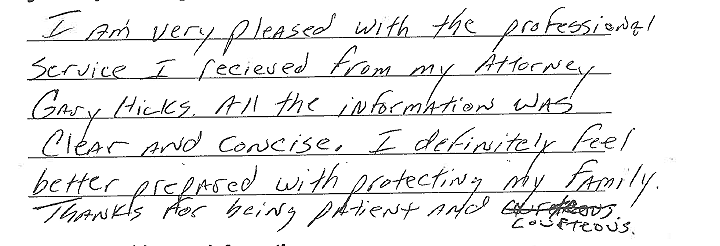 I Am very pleased with the professional
Service I recieved from my Attorney
Gary Hicks. All the information was
Clear and Concise. I definitely feel
better prepared with protecting my family.
Thanks for being patient and
Courteous.